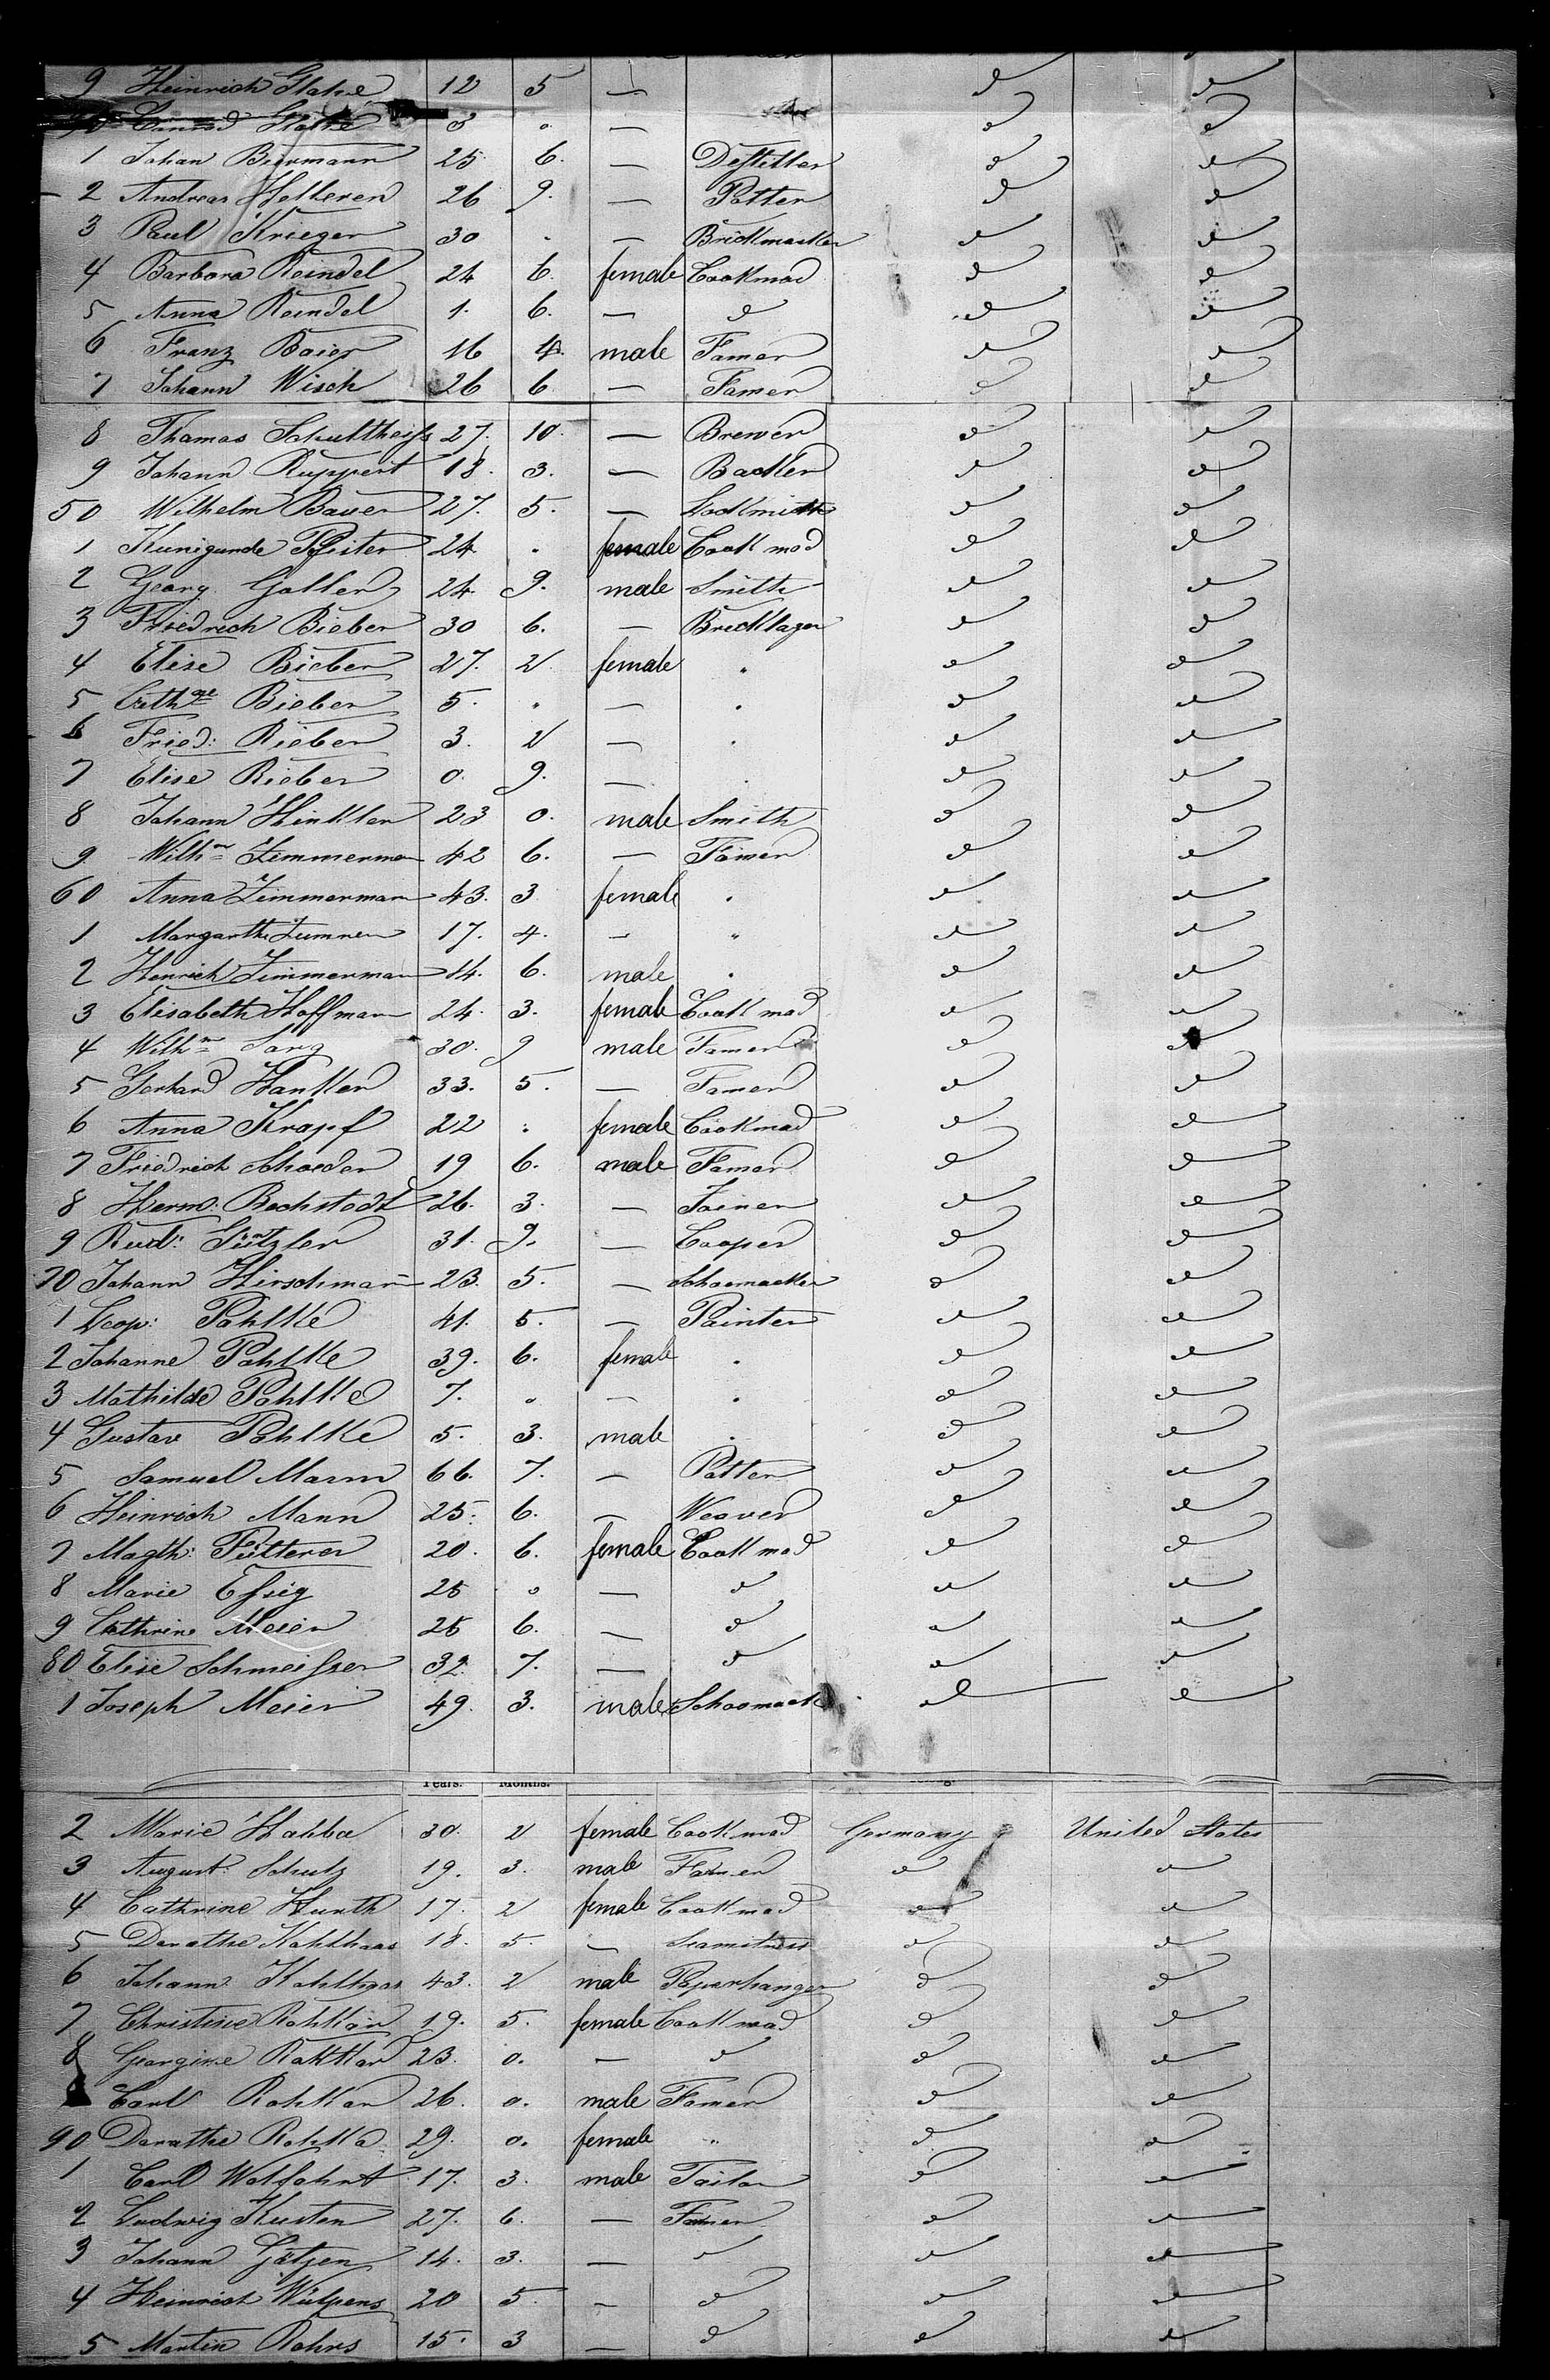 9 Heinrich Stahe 12 5 — do do
40 Conrad Stahe 3 . — do do
1 Johan Biermann 25. 6. — Destiller do do
2 Andreas Holleren 26 9. — Potter do do
3 Paul Krieger 30 . — Brickmacker do do
4 Barbora Reindel 24 6. female Cookmad do do
5 Anna Reindel 1. 6. — do do do
6 Franz Baier 16 4. male Famer do do
7 Johann Wisch 26 6 — Famer do do
8 Thomas Schultheiss 27. 10. — Brewer do do
9 Johann Ruppert 18. 3. — Backer do do
50 Wilhelm Bauer 27. 5. — Lockmith do do
1 Kunigunde Pfister 24 . female Cook mad do do
2 Georg Goller 24 9. male Smith do do
3 Friedrich Bieber 30 6. — Bricklager do do
4 Elise Bieber 27. 2 female . do do
5 Cathne Bieber 5. . — . do do
6 Fried: Bieber 3. 2 — . do do
7 Elise Bieber 0. 9. — . do do
8 Johann Hinkler 23 0. male Smith do do
9 Wilhm Zimmerman 42 6. — Famer do do
60 Anna Zimmerman 43. 3 female . do do
1 Margarthe Zimmer 17. 4. — " do do
2 Henrich Zimmerman 14. 6. male . do do
3 Elisabeth Hoffman 24. 3. female Cook mad do do
4 Wilhm Sarg 30. 9 male Famer do do
5 Gerhard Hanker 33. 5. — Famer do do
6 Anna Krapf 22 . female Cookmad do do
7 Friedrich Schoeder 19 6. male Famer do do
8 Herm: Bechstodt 26. 3. — Joiner do do
9 Rud: Götzler 31. 9. — Cooper do do
70 Johann Hirschmann 23. 5. — Schoemacker do do
1 Leop: Pahlke 41. 5. — Painter do do
2 Johanne Pahlke 39. 6. female . do do
3 Mathilde Pahlke 7. . — . do do
4 Gustav Pahlke 5. 3. male . do do
5 Samuel Mann 66. 7. — Potter do do
6 Heinrich Mann 25. 6. — Weaver do do
7 Magth: Fütterer 20. 6. female Cook mad do do
8 Marie Essig 25 . — do do do
9 Cathrine Meier 25 6. — do do do
80 Elise Schmeisser 32. 7. — do do do
1 Joseph Meier 49. 3. male Schoomack do do
Years. Months.
2 Marie Habba 30. 2 female Cook mad Germany United States
3 August: Schulz 19. 3. male Famer do do
4 Cathrine Hunth 17. 2 female Cook mad do do
5 Darathe Kohlhaas 18. 5. — Seamstress do do
6 Johann Kohlhaas 43. 2 male Paperhanger do do
7 Christine Rohkar 19. 5. female Cook mad do do
8 Georgine Rohkar 23. 0. — do do do
Carl Rohkar 26. 0. male Famer do do
90 Darathe Rohka 29. 0. female " do do
1 Carl Wolfahrt 17. 3. male Tailor do do
2 Ludwig Husten 27. 6. — Famer do do
3 Johann Götjen 14. 3. — do do do
4 Heinrich Wülpens 20 5. — do do do
5 Martin Rohrs 15. 3 — do do do